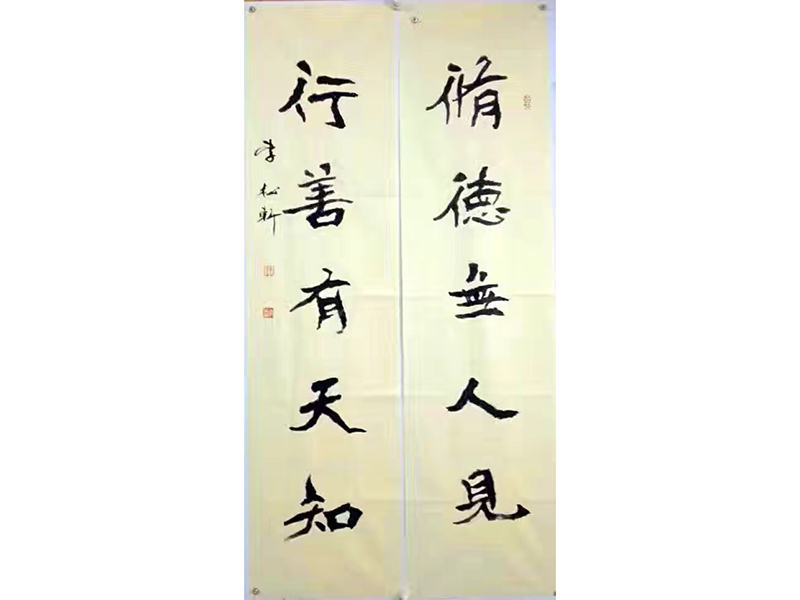 脩德無人見
行善有天知
李松軒